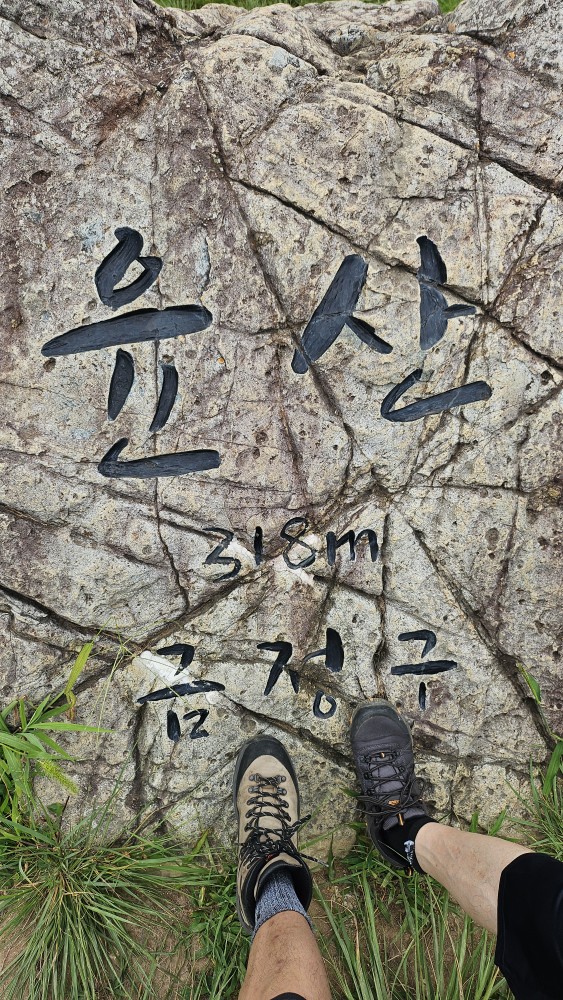 윤산
318m
금정구